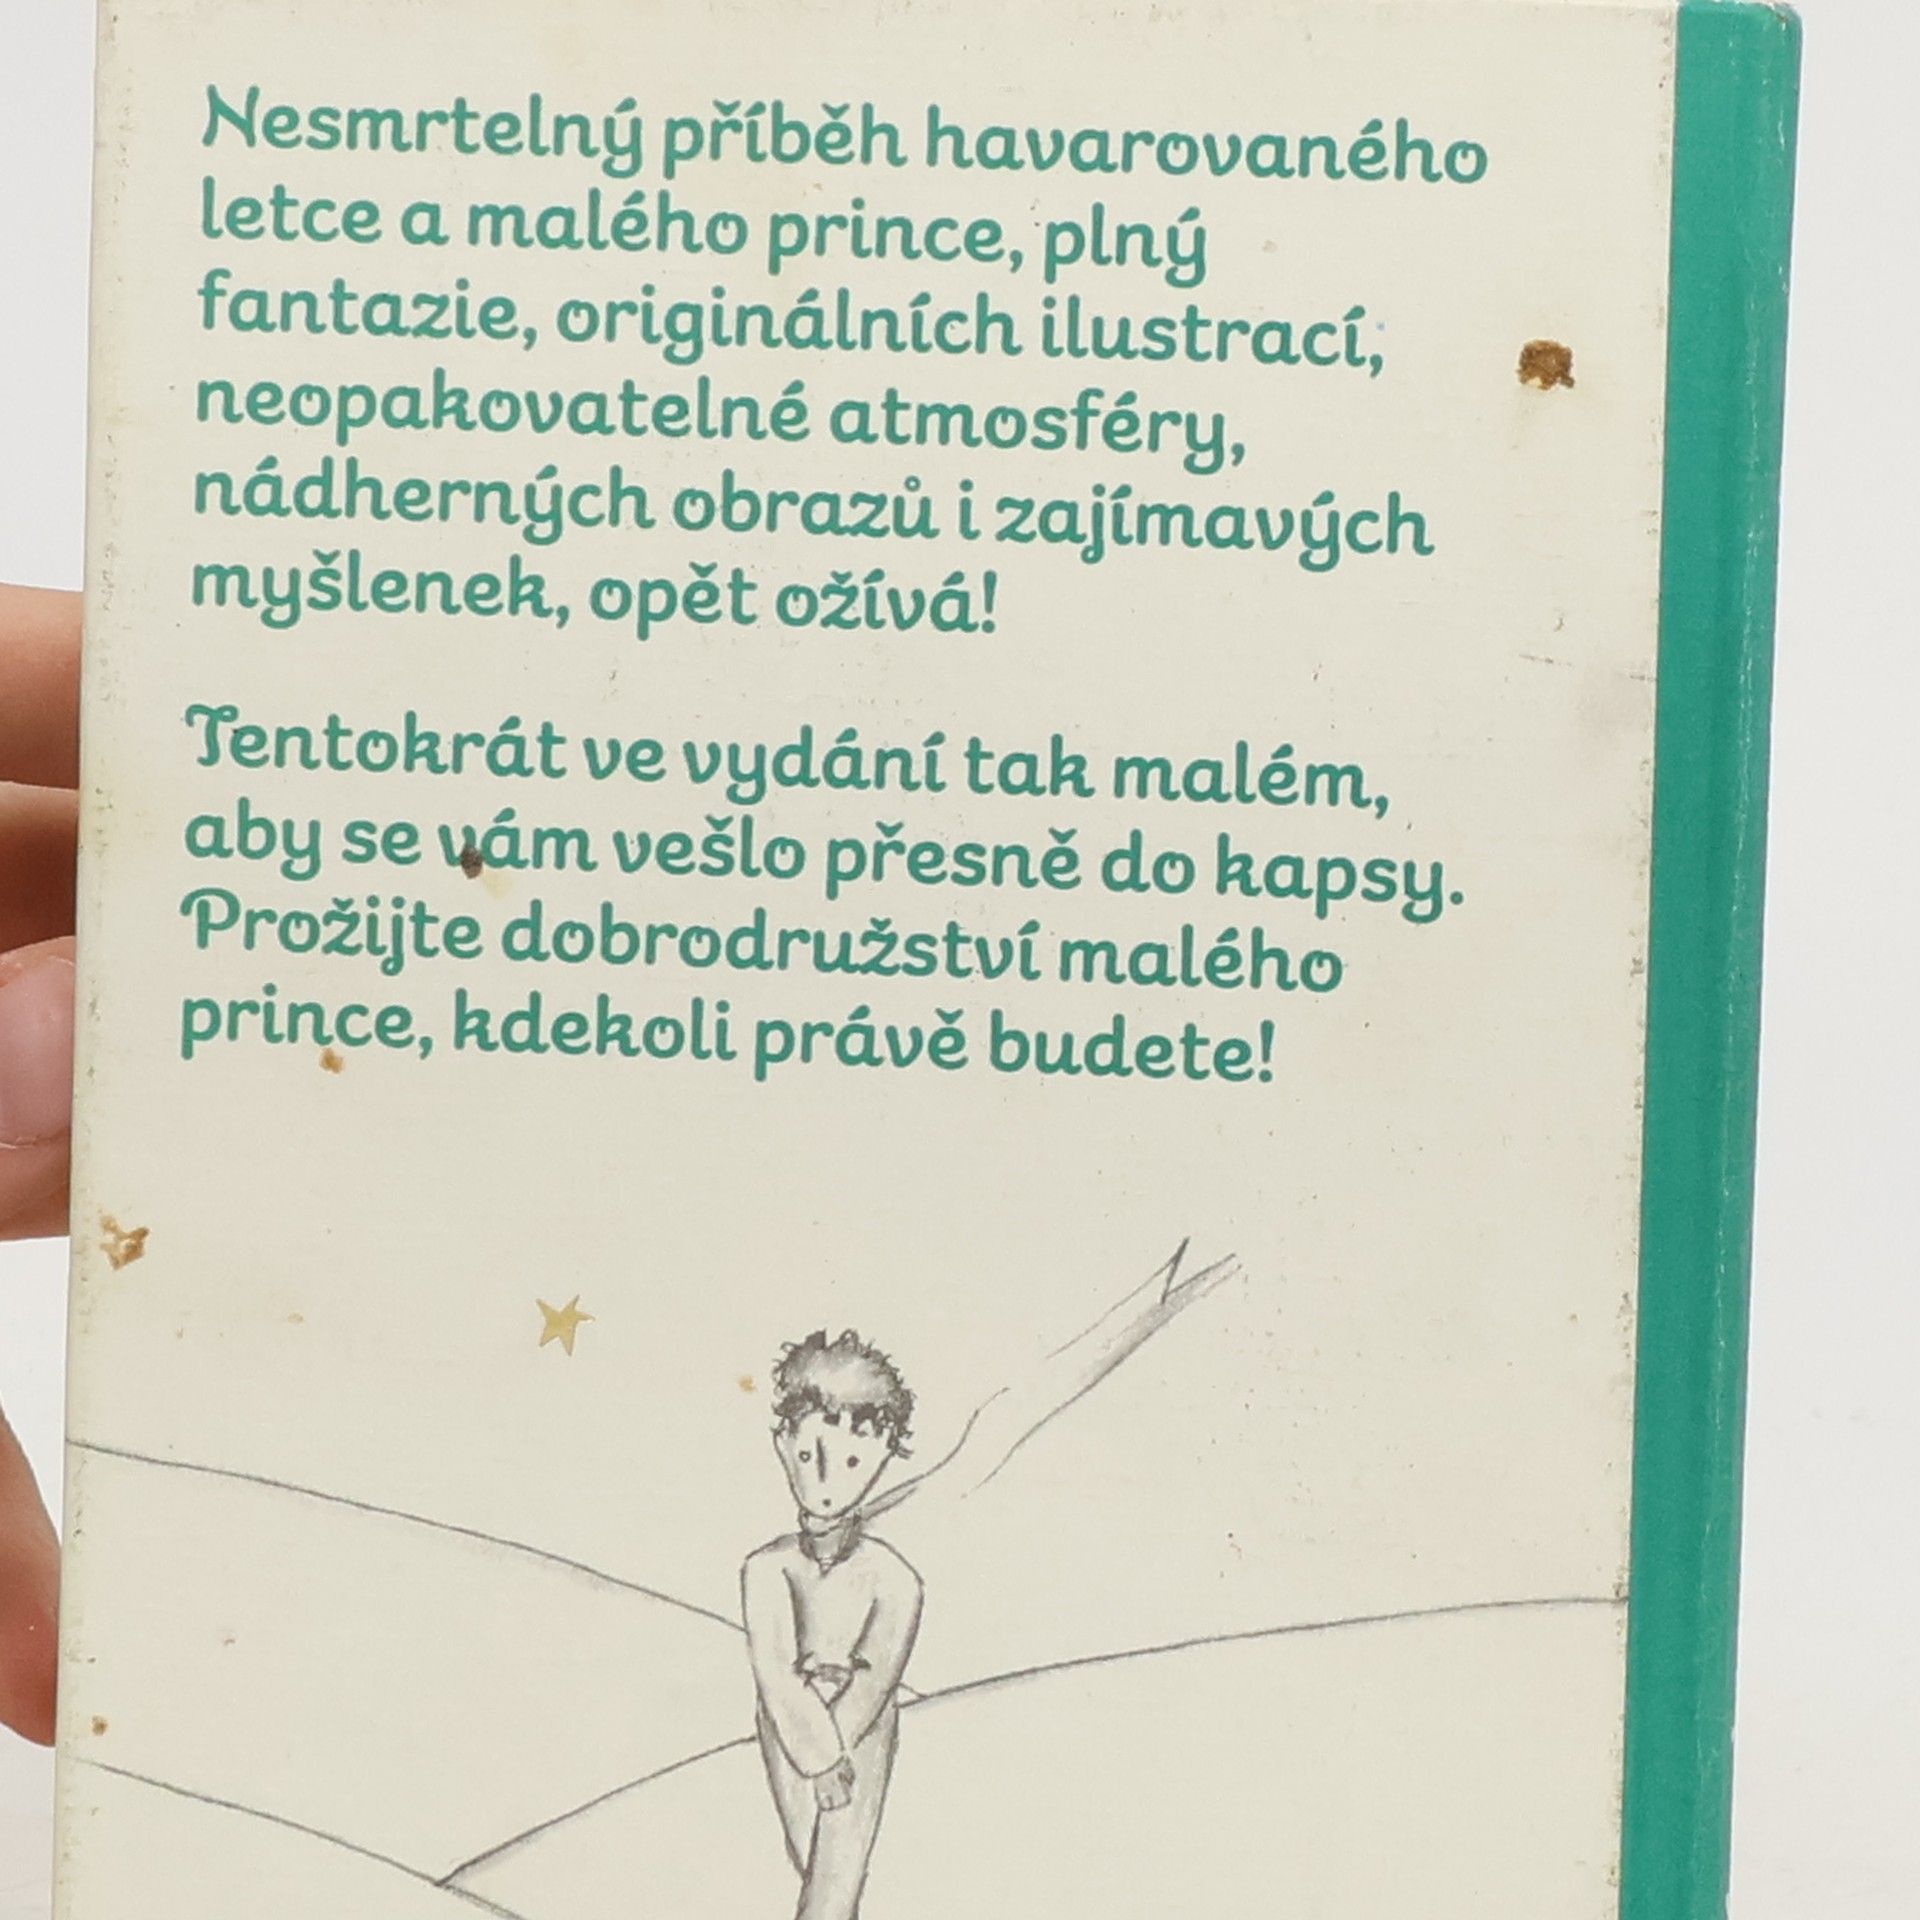 Nesmrtelný příběh havarovaného
letce a malého prince, plný
fantazie, originálních ilustrací,
neopakovatelné atmosféry,
nádherných obrazů i zajímavých
myšlenek, opět ožívá!
Tentokrát ve vydání tak malém,
aby se vám vešlo přesně do kapsy.
Prožijte dobrodružství malého
prince, kdekoli právě budete!